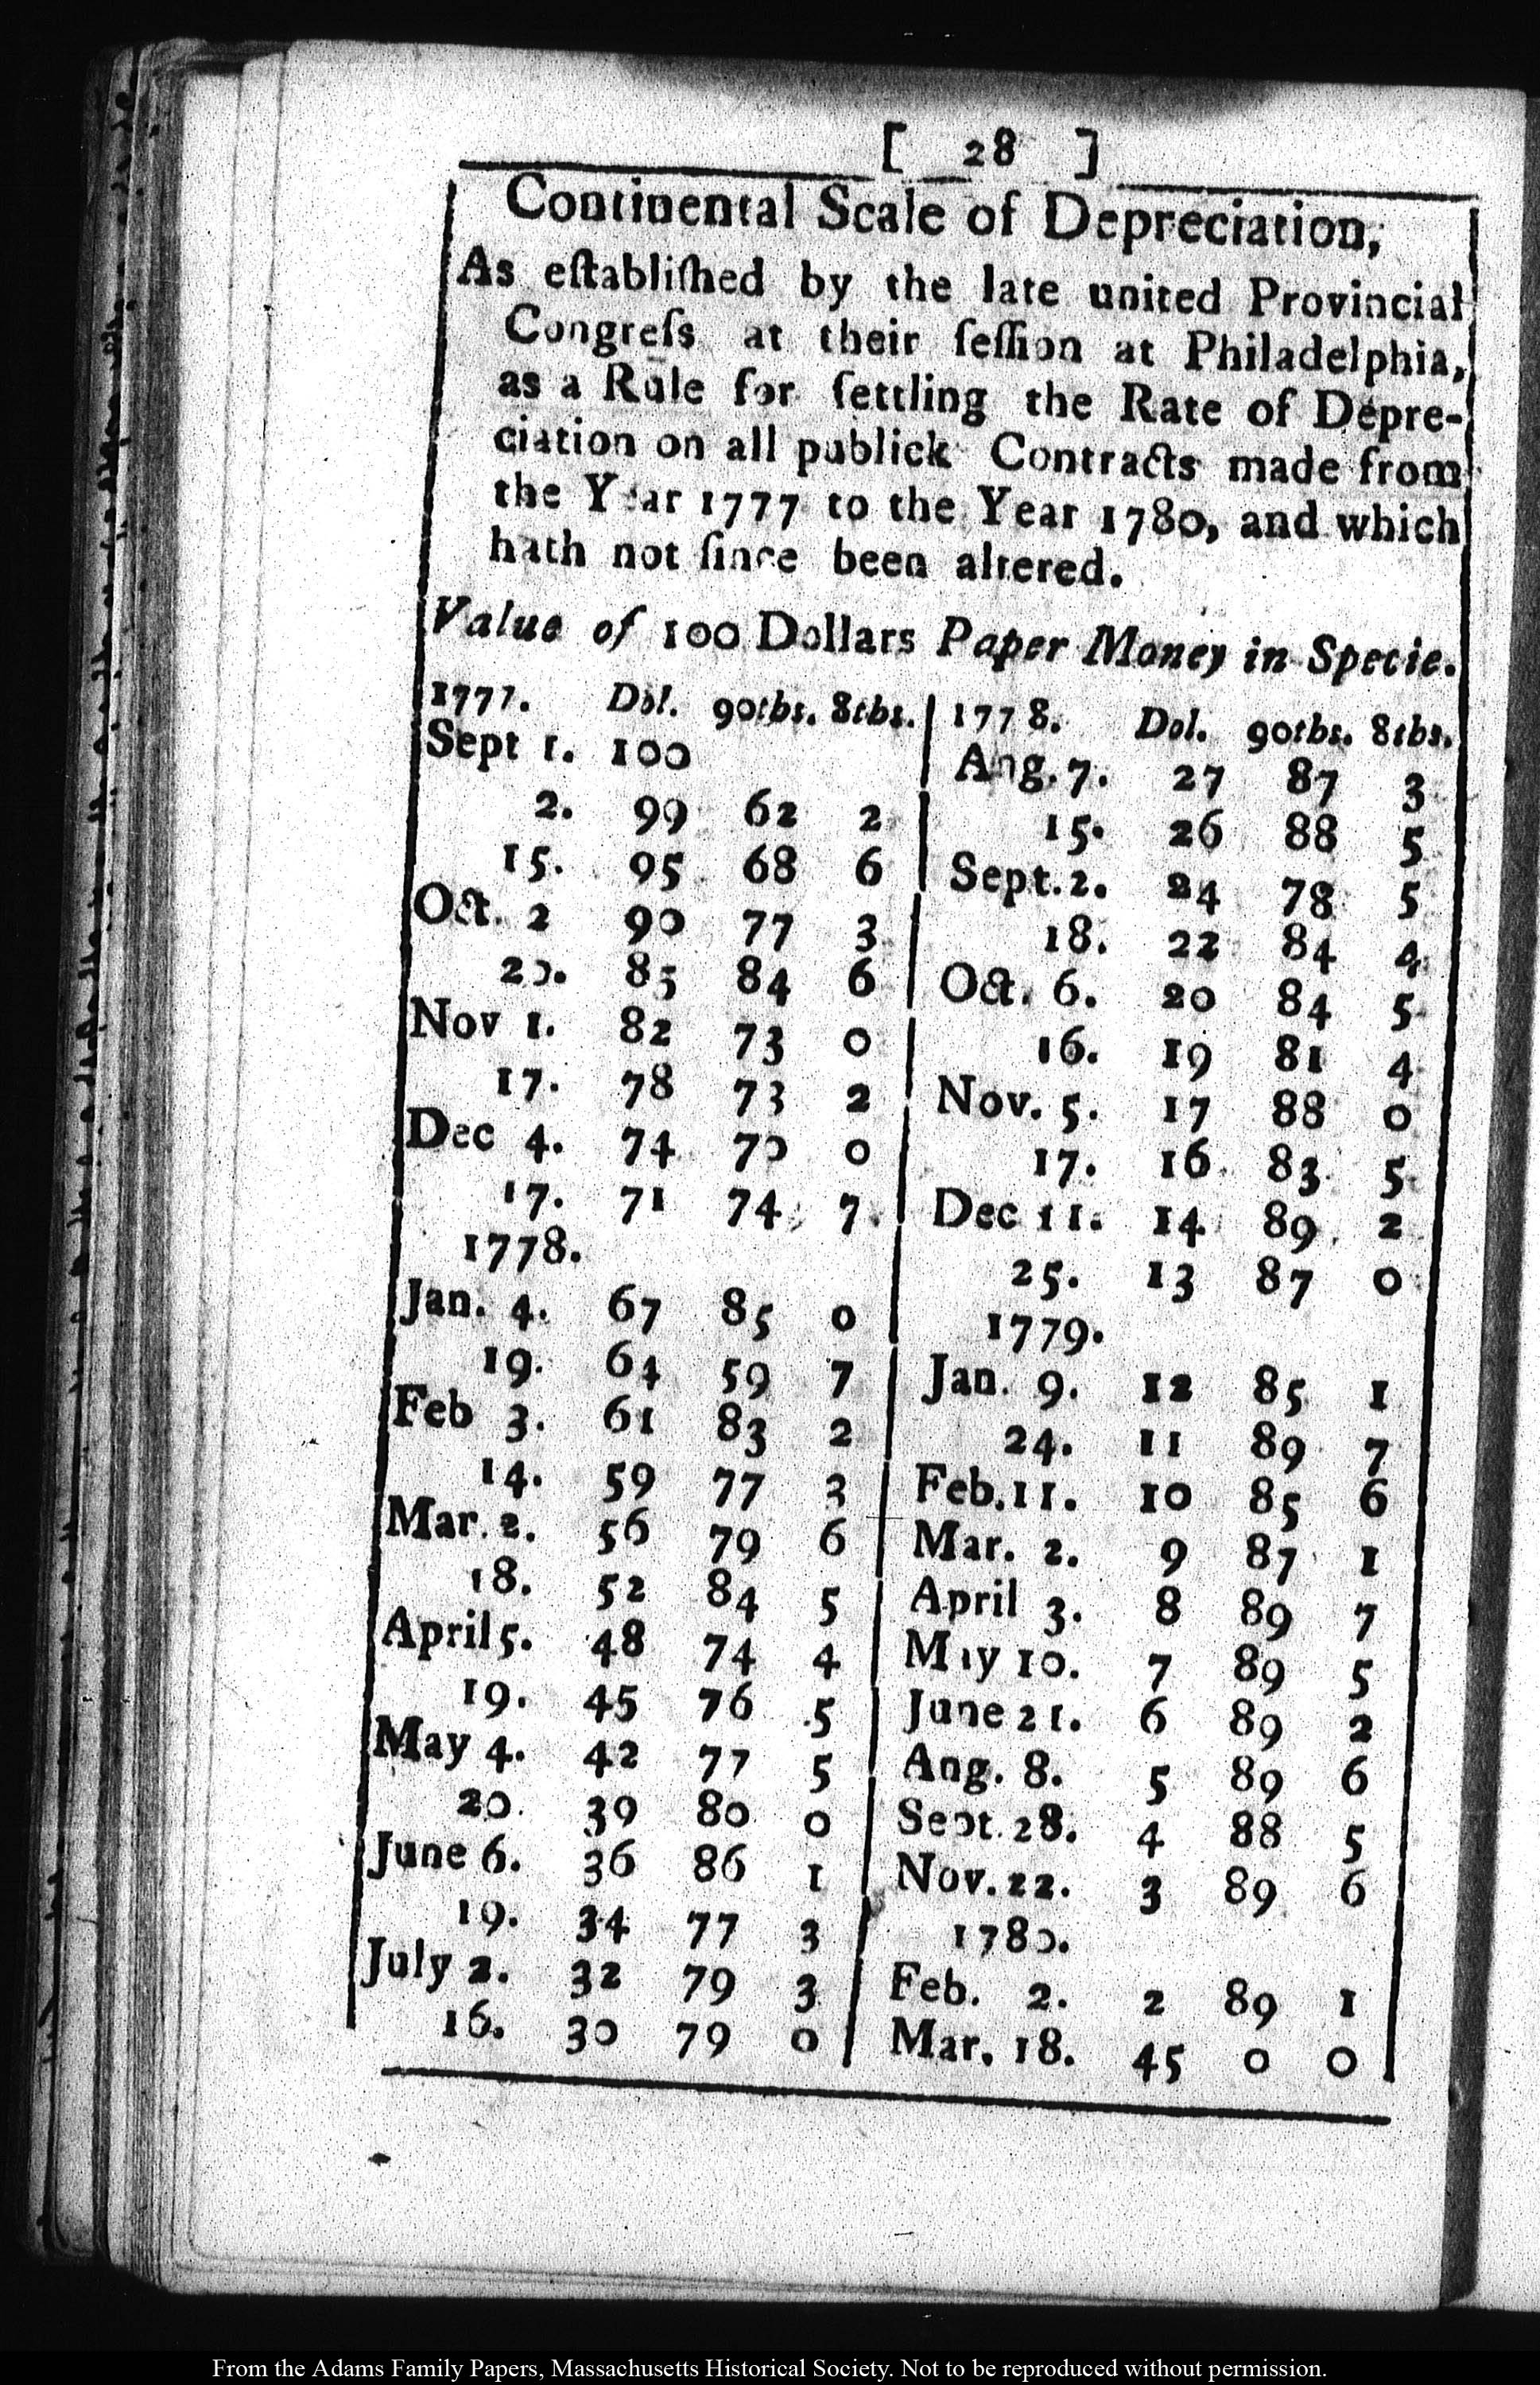 [ 28 ]
Continental Scale of Depreciation,
As eſtabliſhed by the late united Provincial
Congreſs at their ſeſſion at Philadelphia,
as a Rule for ſettling the Rate of Depre-
ciation on all publick Contracts made from
the Year 1777 to the Year 1780, and which
hath not ſince been altered.
Value of 100 Dollars Paper Money in Specie.
1777. Dol. 90ths. 8ths.
Sept 1. 100
2. 99 62 2
15. 95 68 6
Oct. 2 90 77 3
20. 85 84 6
Nov 1. 82 73 0
17. 78 73 2
Dec 4. 74 70 0
17. 71 74 7
1778.
Jan. 4. 67 85 0
19. 64 59 7
Feb 3. 61 83 2
14. 59 77 3
Mar. 2. 56 79 6
18. 52 84 5
April 5. 48 74 4
19. 45 76 5
May 4. 42 77 5
20. 39 80 0
June 6. 36 86 1
19. 34 77 3
July 2. 32 79 3
16. 30 79 0
1778. Dol. 90ths. 8ths.
Aug. 7. 27 87 3
15. 26 88 5
Sept. 2. 24 78 5
18. 22 84 4
Oct. 6. 20 84 5
16. 19 81 4
Nov. 5. 17 88 0
17. 16 83 5
Dec 11. 14 89 2
25. 13 87 0
1779.
Jan. 9. 12 85 1
24. 11 89 7
Feb. 11. 10 85 6
Mar. 2. 9 87 1
April 3. 8 89 7
May 10. 7 89 5
June 21. 6 89 2
Aug. 8. 5 89 6
Sept. 28. 4 88 5
Nov. 22. 3 89 6
1780.
Feb. 2. 2 89 1
Mar. 18. 45 0 0
From the Adams Family Papers, Massachusetts Historical Society. Not to be reproduced without permission.